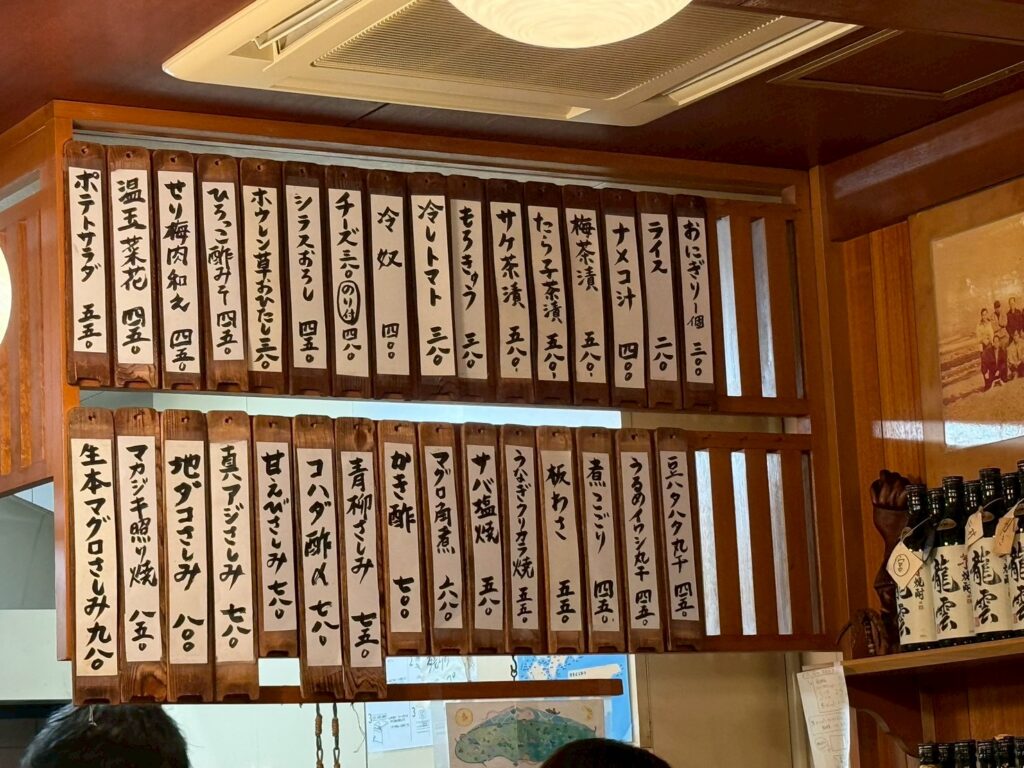 おにぎり一個 三〇〇
ライス 二八〇
ナメコ汁 四〇〇
梅茶漬 五八〇
たら子茶漬 五八〇
サケ茶漬 五八〇
もろきゅう 三八〇
冷しトマト 三八〇
冷奴 四〇〇
チーズ三〇のり付四八〇
シラスおろし 四五〇
ホウレン草おひたし三八〇
ひろっこ酢みそ 四五〇
せり梅肉和え 四五〇
温玉菜花 四五〇
ポテトサラダ 五五〇
豆ハタハタ丸干 四五〇
うるめイワシ丸干 四五〇
煮こごり 四五〇
板わさ 五五〇
うなぎクリカラ焼 五五〇
サバ塩焼 五八〇
マグロ角煮 六八〇
かき酢 七〇〇
青柳さしみ 七五〇
コハダ酢〆 七八〇
甘えびさしみ 七八〇
真アジさしみ 七八〇
地ダコさしみ 八〇〇
マカジキ照り焼 八五〇
生本マグロさしみ 九八〇
龍雲
龍雲
龍雲